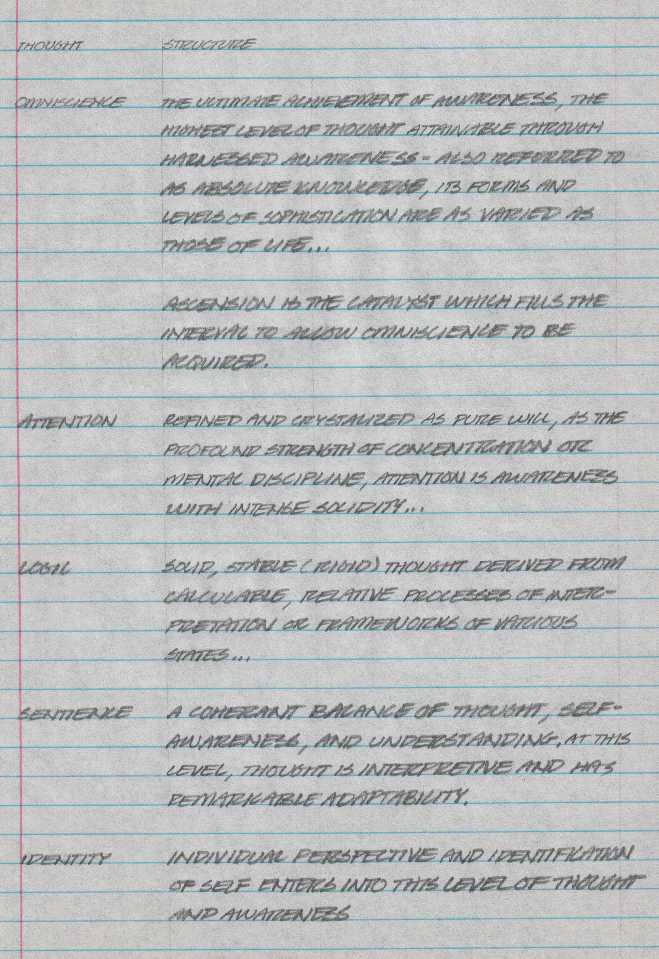 THOUGHT STRUCTURE
OMNISCIENCE THE ULTIMATE ACHIEVEMENT OF AWARENESS, THE
HIGHEST LEVEL OF THOUGHT ATTAINABLE THROUGH
HARNESSED AWARENESS - ALSO REFERRED TO
AS ABSOLUTE KNOWLEDGE, ITS FORMS AND
LEVELS OF SOPHISTICATION ARE AS VARIED AS
THOSE OF LIFE...
ASCENSION IS THE CATALYST WHICH FILLS THE
INTERVAL TO ALLOW OMNISCIENCE TO BE
ACQUIRED.
ATTENTION REFINED AND CRYSTALIZED AS PURE WILL, AS THE
PROFOUND STRENGTH OF CONCENTRATION OR
MENTAL DISCIPLINE, ATTENTION IS AWARENESS
WITH INTENSE SOLIDITY...
LOGIC SOLID, STABLE (RIGID) THOUGHT DERIVED FROM
CALCULABLE, RELATIVE PROCESSES OF INTER-
PRETATION OR FRAMEWORKS OF VARIOUS
STATES...
SENTIENCE A COHERANT BALANCE OF THOUGHT, SELF-
AWARENESS, AND UNDERSTANDING. AT THIS
LEVEL, THOUGHT IS INTERPRETIVE AND HAS
REMARKABLE ADAPTABILITY.
IDENTITY INDIVIDUAL PERSPECTIVE AND IDENTIFICATION
OF SELF ENTERS INTO THIS LEVEL OF THOUGHT
AND AWARENESS